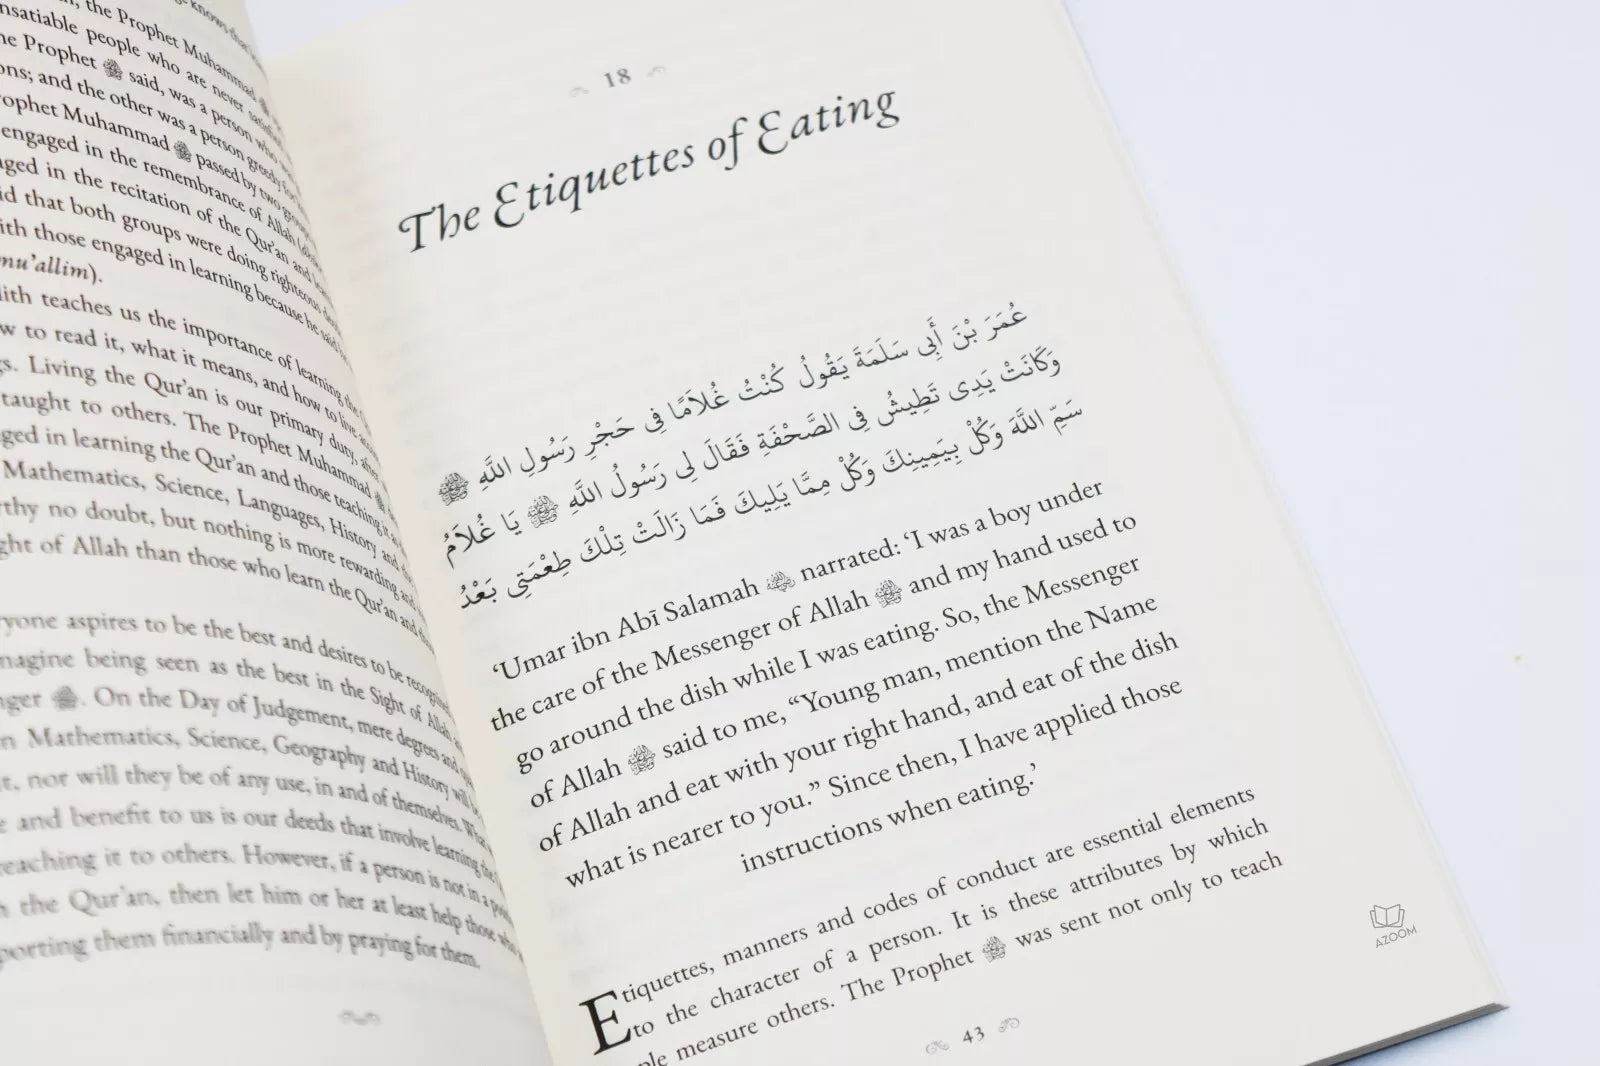 the Prophet Muhammad
nsatiable people who are never
he Prophet ﷺ said, was a person who
ons; and the other was a person greedy for
rophet Muhammad ﷺ passed by two groups
engaged in the remembrance of Allah
aged in the recitation of the Qur'an and
id that both groups were doing righteous
ith those engaged in learning because he said
mu'allim).
lith teaches us the importance of learning the
w to read it, what it means, and how to live
gs. Living the Qur'an is our primary duty, after
taught to others. The Prophet Muhammad ﷺ
ged in learning the Qur'an and those teaching it
Mathematics, Science, Languages, History and
rthy no doubt, but nothing is more rewarding and
ght of Allah than those who learn the Qur'an and
ryone aspires to be the best and desires to be
magine being seen as the best in the Sight of Allah
nger ﷺ. On the Day of Judgement, mere degrees and
n Mathematics, Science, Geography and History will
t, nor will they be of any use, in and of themselves.
e and benefit to us is our deeds that involve learning the
reaching it to others. However, if a person is not in a
h the Qur'an, then let him or her at least help those
porting them financially and by praying for them.
18
The Etiquettes of Eating
عُمَرَ بْنَ أَبِى سَلَمَةَ يَقُولُ كُنْتُ غُلَامًا فِى حَجْرِ رَسُولِ اللَّهِ ﷺ
وَكَانَتْ يَدِى تَطِيشُ فِى الصَّحْفَةِ فَقَالَ لِى رَسُولُ اللَّهِ ﷺ يَا غُلَامُ
سَمِّ اللَّهَ وَكُلْ بِيَمِينِكَ وَكُلْ مِمَّا يَلِيكَ فَمَا زَالَتْ تِلْكَ طِعْمَتِى بَعْدُ
'Umar ibn Abī Salamah narrated: 'I was a boy under
the care of the Messenger of Allah ﷺ and my hand used to
go around the dish while I was eating. So, the Messenger
of Allah ﷺ said to me, "Young man, mention the Name
of Allah and eat with your right hand, and eat of the dish
what is nearer to you." Since then, I have applied those
instructions when eating.'
Etiquettes, manners and codes of conduct are essential elements
to the character of a person. It is these attributes by which
ple measure others. The Prophet ﷺ was sent not only to teach
43
AZOOM